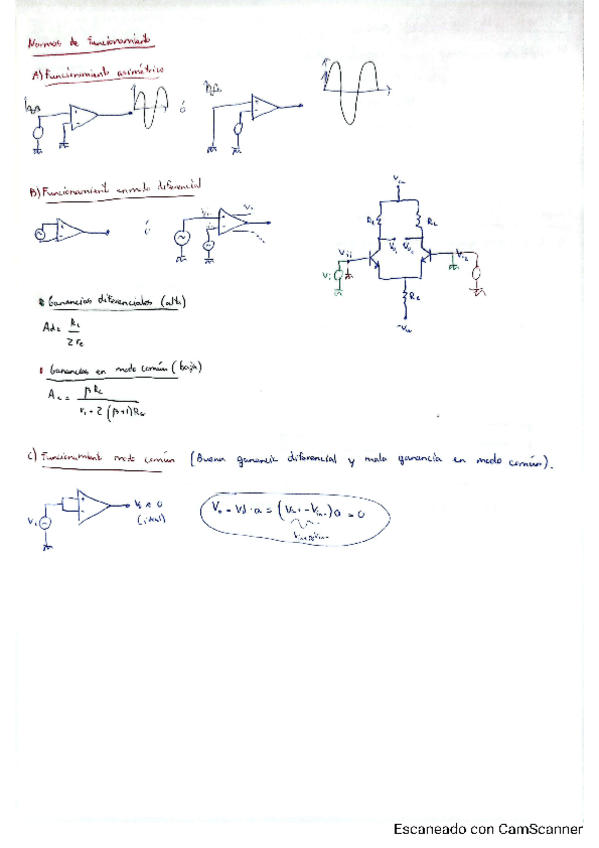 Normas de funcionamiento
A) Funcionamiento asimétrico
ó
B) Funcionamient en modo diferencial
ó
Rc
Rc
Vi1
Vi2
Ganancias diferenciales (alta)
Ad = Rc / 2re
Ganancias en modo común (baja)
Ac = βRc / ri + 2(β+1)RE
C) Funcionament modo común (Buena ganancia diferencial y mala ganancia en modo común).
(ideal)
Vo = Vd · a = (Vin+ - Vin-) a = 0
Escaneado con CamScanner